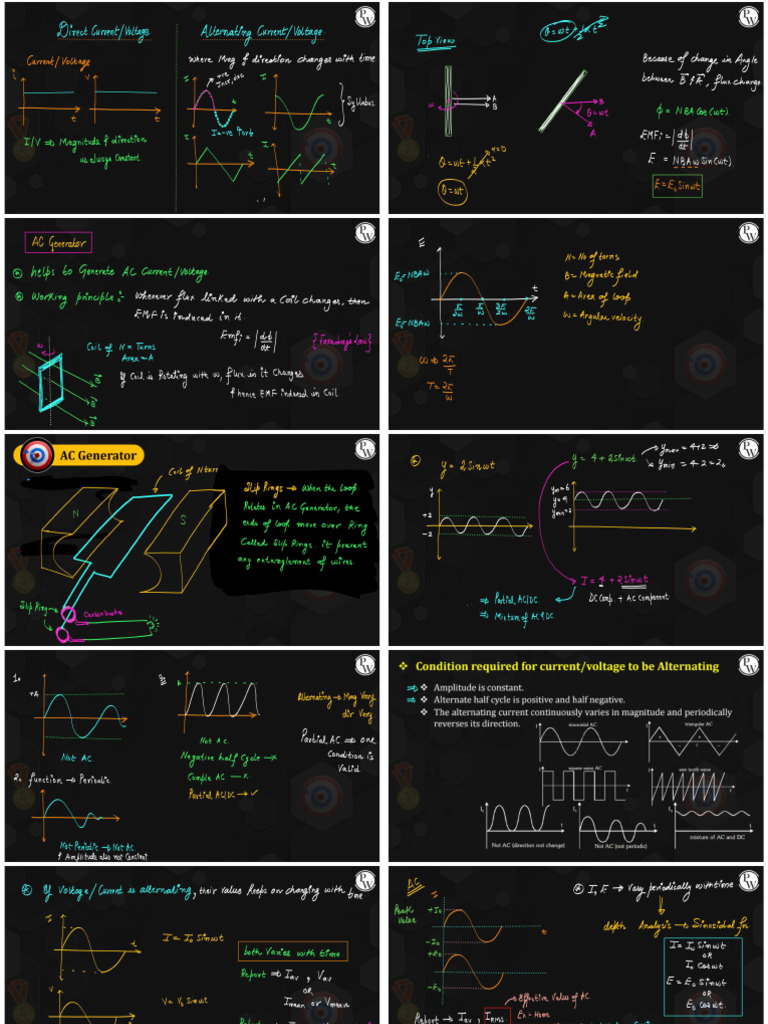 Direct Current/Voltage
Current/Voltage
i
V
t
t
I/V ⇒ Magnitude & direction
is always Constant
Alternating Current/Voltage
where Mag & direction changes with time
I
I
t
Syllabus
I
I
t
Top View
θ = ωt
ω
A
B
θ = ωt
B
A
α = 0
θ = ωt
Because of change in Angle
between B & A, flux change
ϕ = NBA Cos(ωt)
EMFi = |dϕ/dt|
E = NBAω Sin(ωt)
E = E₀ Sinωt
AC Generator
helps to Generate AC Current/Voltage
Working principle:- Whenever flux linked with a Coil changes, then
EMF is induced in it.
Emfi = |dϕ/dt|
{Faraday's Law}
Coil of N = Turns
Area = A
If Coil is Rotating with ω, flux in it Changes
& hence EMF induced in Coil
ω
B
B
B
E
E₀ = NBAω
E₀ = NBAω
t
π/2ω
π/ω
3π/2ω
2π/ω
N = No of turns
B = Magnetic field
A = Area of loop
ω = Angular velocity
ω ⇒ 2π/T
T = 2π/ω
AC Generator
Coil of N turn
N
S
Slip Rings
Slip Rings → When the loop
Rotates in AC Generator, the
ends of loop move over Ring
Called Slip Rings. it prevent
any entanglement of wires.
y = 2 Sinωt
y
+2
-2
t
y = 4 + 2 Sinωt
ymax = 4+2
ymin = 4-2 = 2
ym = 6
y = 4
ymin = 2
I = 4 + 2 Sinωt
DC Comp + AC Component
⇒ Partial AC/DC
⇒ Mixture of AC & DC
1.
+A
Not AC
2. function → Periodic
Not Periodic → Not AC
& Amplitude also not Constant
Not A.C.
Negative half Cycle → x
Comple AC → x
Partial AC/DC → ✓
Alternating → Mag Vary
dir Vary
Partial AC ⇒ one
Condition is
Valid
❖ Condition required for current/voltage to be Alternating
⇒ ❖ Amplitude is constant.
⇒ ❖ Alternate half cycle is positive and half negative.
❖ The alternating current continuously varies in magnitude and periodically
reverses its direction.
sinusoidal AC
triangular AC
square wave AC
saw tooth wave
Not AC (direction not change)
Not AC (not periodic)
mixture of AC and DC
If Voltage/Current is alternating, their value keeps on changing with time
I
I = I₀ Sinωt
V
V = V₀ Sinωt
both Varies with time
Report ⇒ Iav, Vav
Imean or Vmean
AC
Peak
Value
+I₀
-I₀
t
+E₀
-E₀
I, E → Vary periodically with time
depth Analysis → Sinosoidal fn
I = I₀ Sinωt
OR
I₀ Cosωt
E = E₀ Sinωt
OR
E₀ Cosωt
Effective Value of AC
Ex- Home
Report → Iav, IRMS